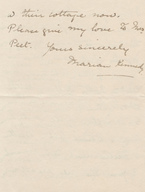 their cottage now.
Please give my love to Mrs
Peet. Yours sincerely
Marian